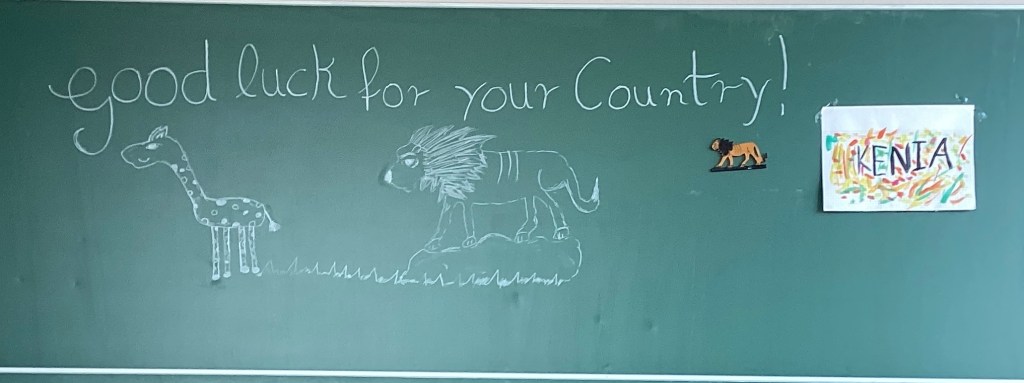 Good luck for your Country!
KENIA